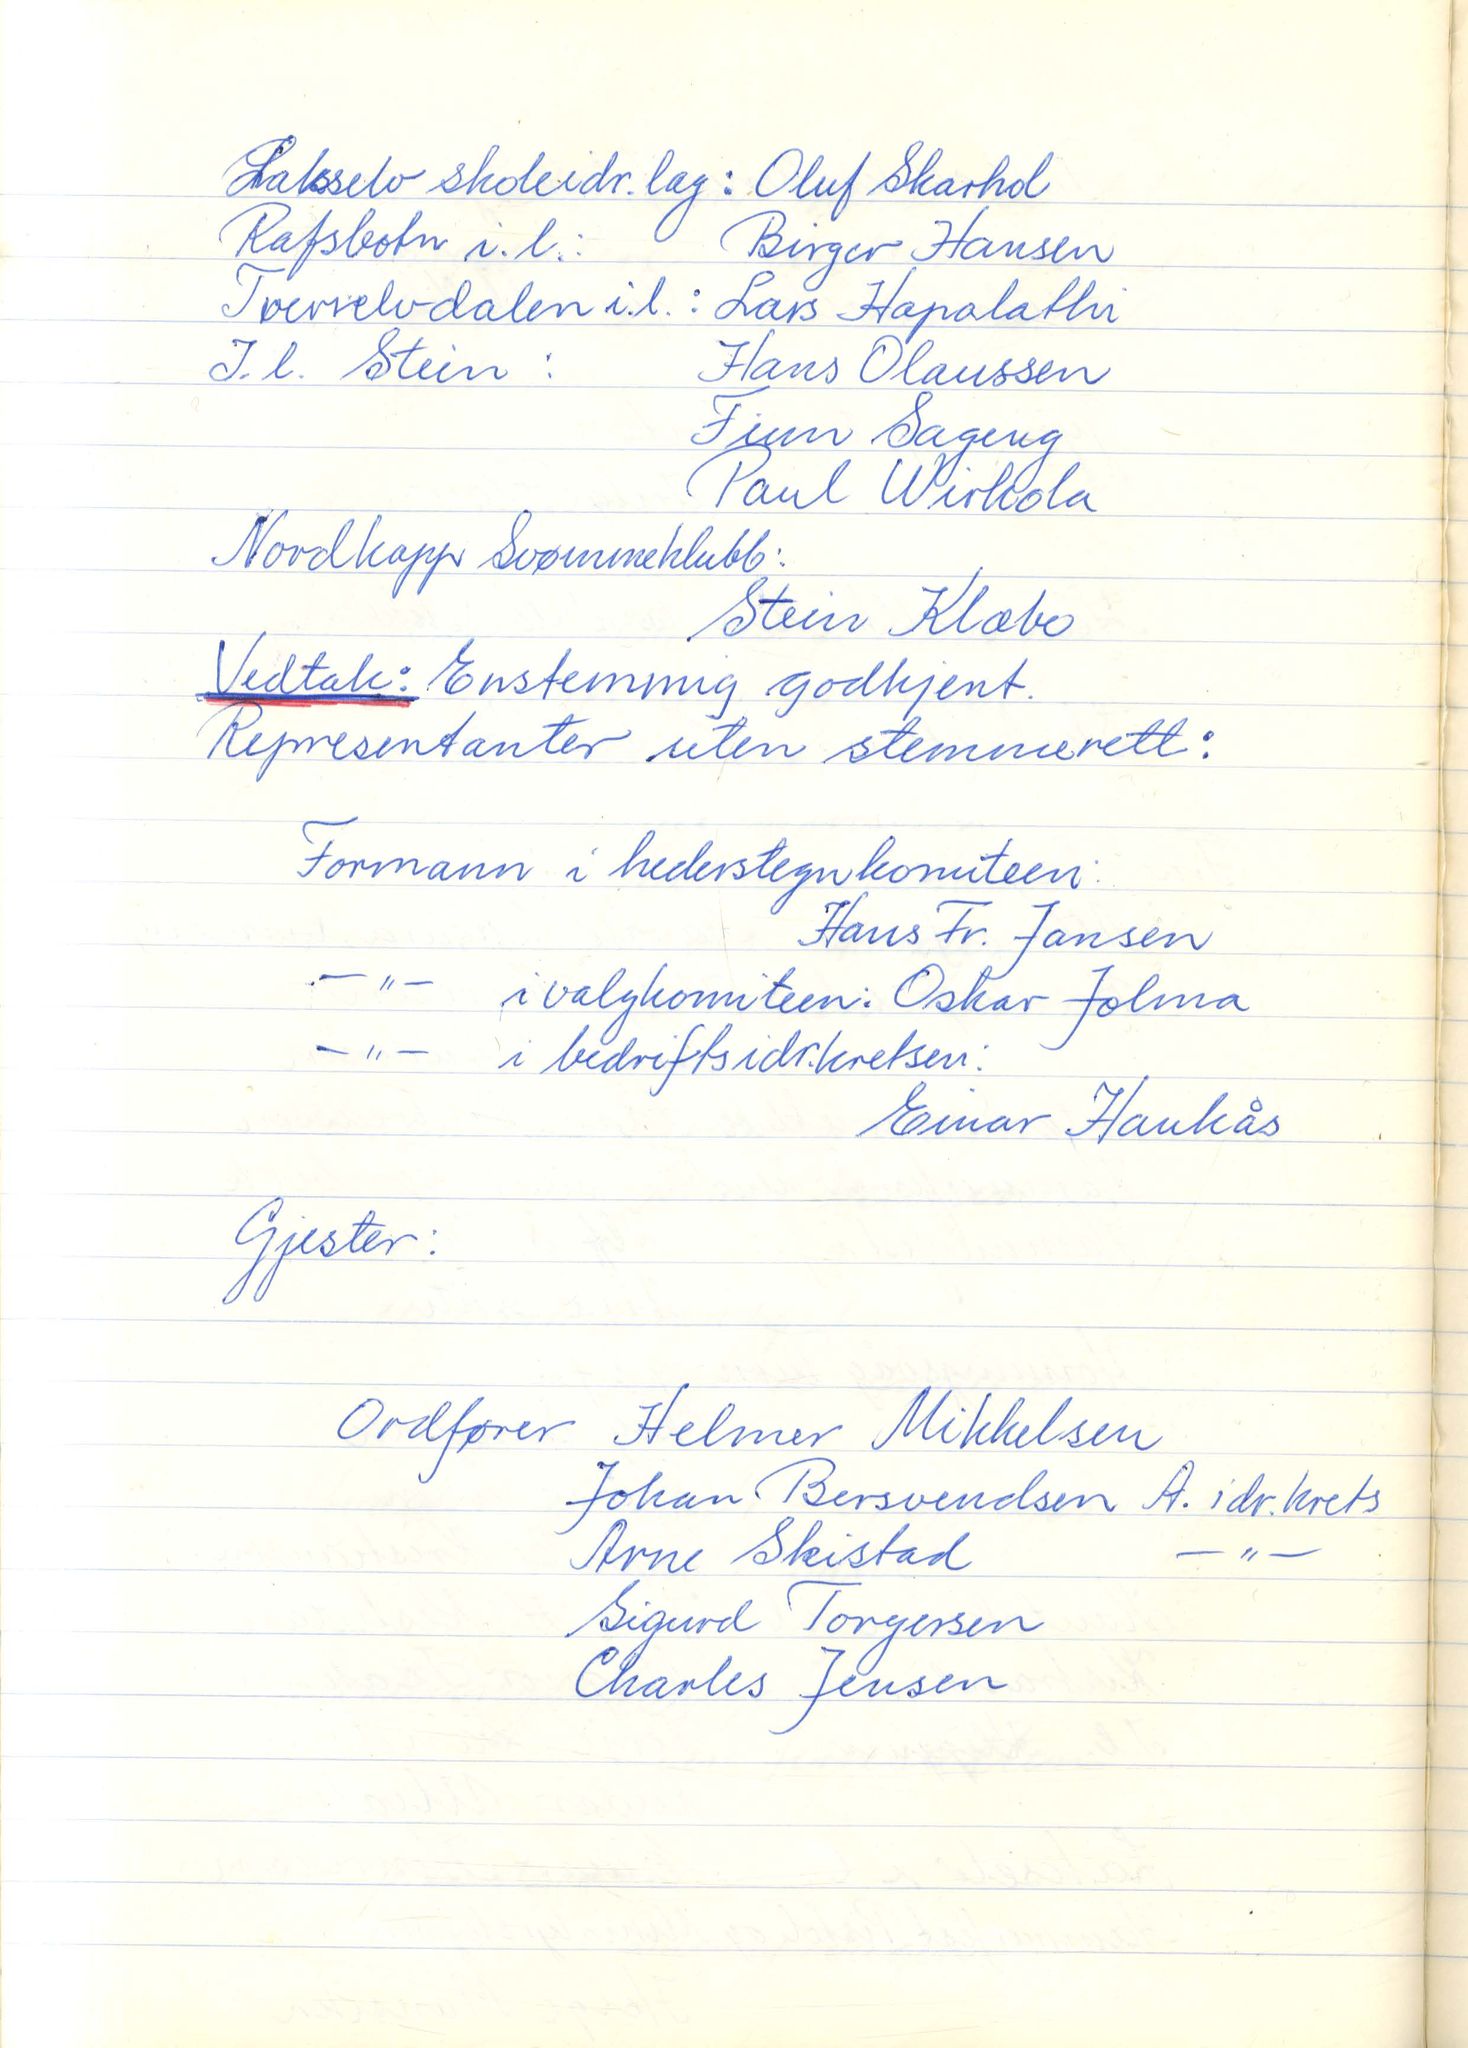 Lakselv skoleidr. lag: Oluf Skarhol
Rafsbotn i.l.: Birger Hansen
Tverrelvdalen i.l.: Lars Hapalathi
I.l. Stein: Hans Olaussen
Finn Sageng
Paul Wirkola
Nordkapp Svømmeklubb:
Stein Klæbo
Vedtak: Enstemmig godkjent.
Representanter uten stemmerett:
Formann i hederstegnkomiteen:
Hans Fr. Jansen
— " — i valgkomiteen: Oskar Jolma
— " — i bedriftsidr.kretsen:
Einar Haukås
Gjester:
Ordfører Helmer Mikkelsen
Johan Bersvendsen A. idr.krets
Arne Skistad — " —
Sigurd Torgersen
Charles Jensen